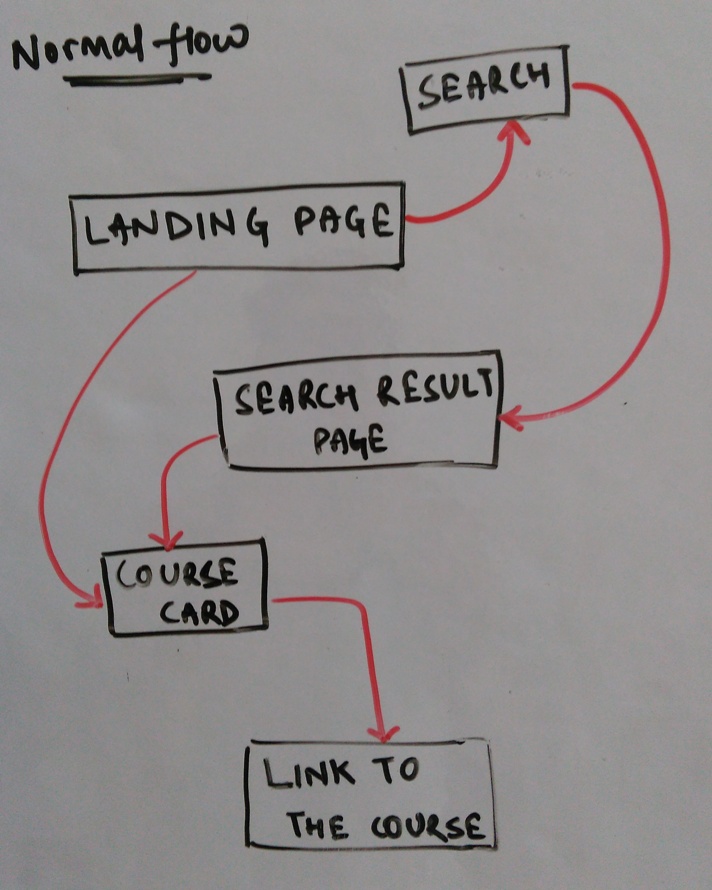 Normal flow
SEARCH
LANDING PAGE
SEARCH RESULT
PAGE
COURSE
CARD
LINK TO
THE COURSE